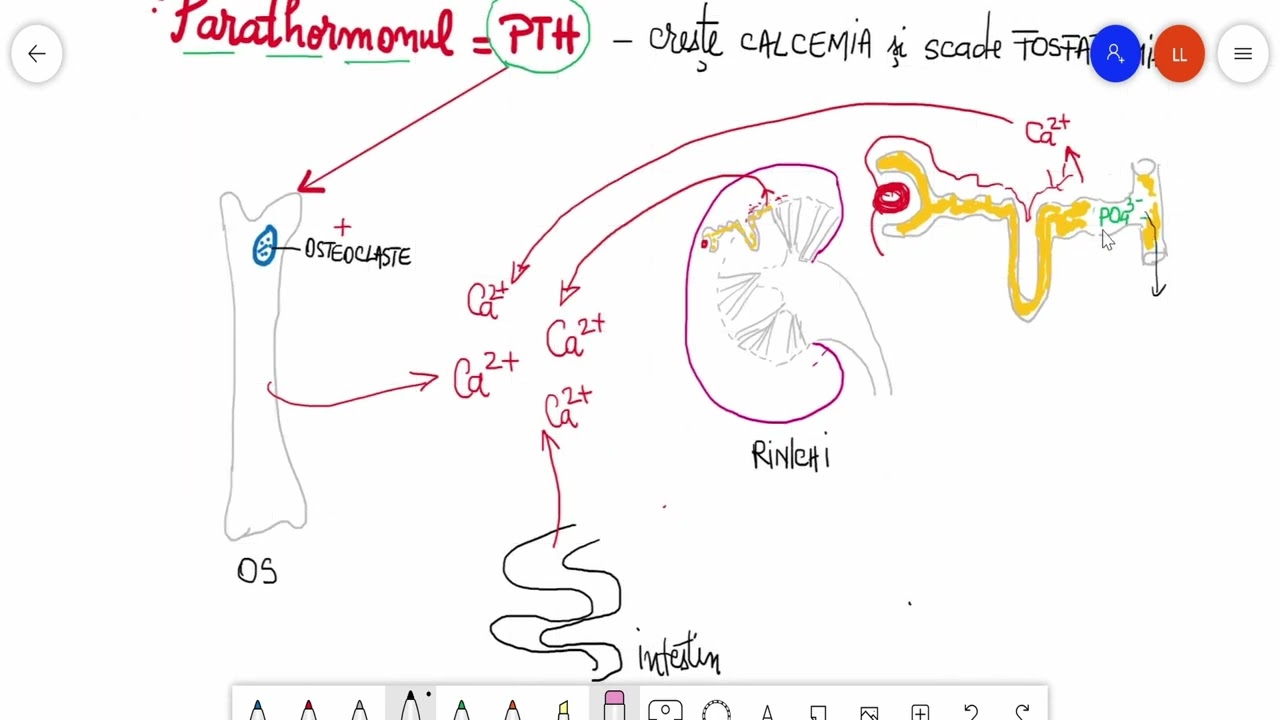 Parathormonul = PTH – crește CALCEMIA și scade
LL
Ca2+
PO43-
+
OSTEOCLASTE
Ca2+
Ca2+
Ca2+
Ca2+
RINICHI
OS
intestin
A